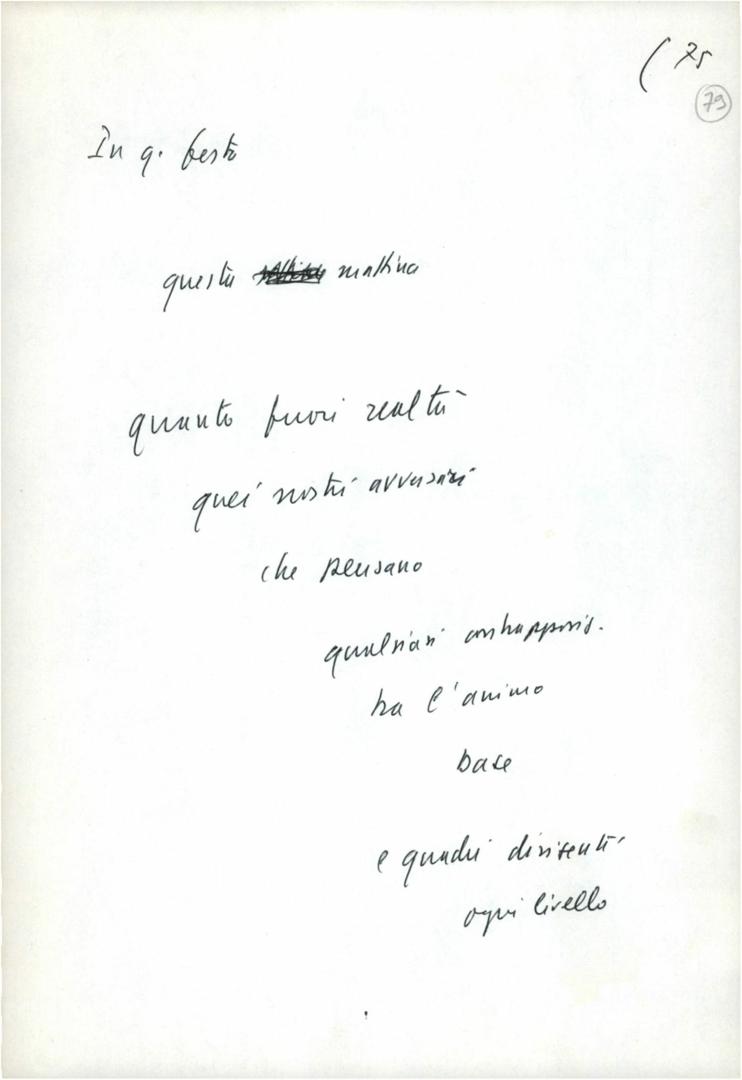 ( 75
79
In q. festa
questa mattina
quanto fuori realtà
quei nostri avversari
che pensano
qualsiasi contrappos.
tra l'animo
base
e quadri dirigenti
ogni livello